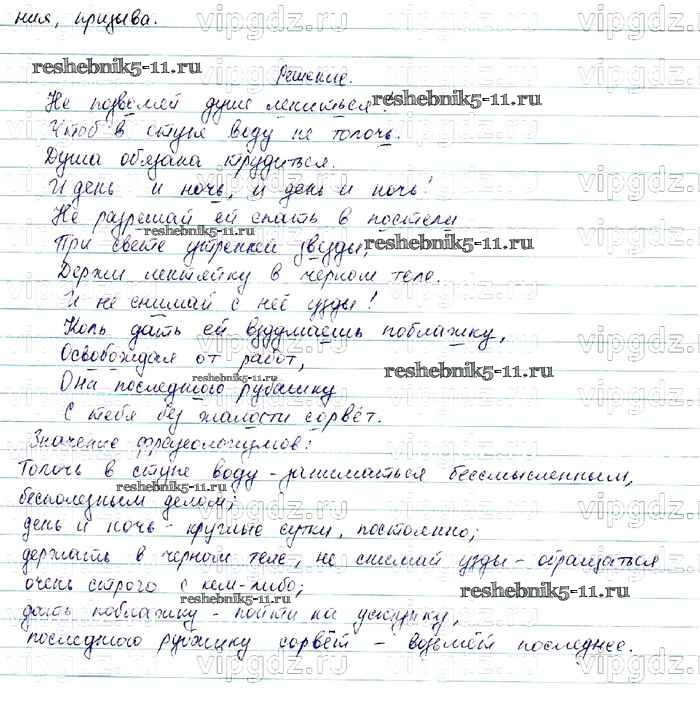 ния, призыва.
Решение.
Не позволяй душе лениться!
Чтоб в ступе воду не толочь.
Душа обязана трудиться.
И день и ночь, и день и ночь!
Не разрешай ей спать в постели
При свете утренней звезды,
Держи лентяйку в чёрном теле.
И не снимай с неё узды!
Коль дать ей вздумаешь поблажку,
Освобождая от работ,
Она последнюю рубашку
С тебя без жалости сорвёт.
Значение фразеологизмов:
Толочь в ступе воду - заниматься бессмысленным,
бесполезным делом;
день и ночь - круглые сутки, постоянно;
держать в чёрном теле, не снимай узды - обращаться
очень строго с кем-либо;
дать поблажку - пойти на уступку,
сорвёт - возьмёт последнее.
reshebnik5-11.ru
reshebnik5-11.ru
reshebnik5-11.ru
reshebnik5-11.ru
reshebnik5-11.ru
reshebnik5-11.ru
reshebnik5-11.ru
reshebnik5-11.ru
reshebnik5-11.ru
vipgdz.ru